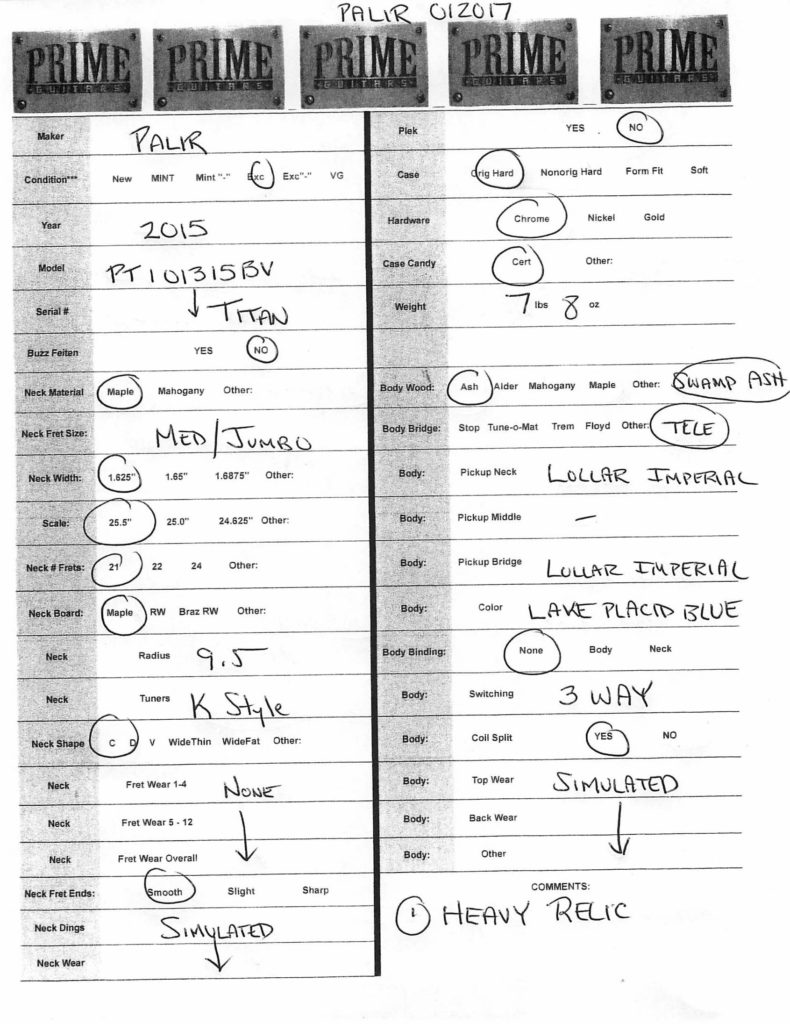 PALIR 012017
PRIME GUITARS PRIME GUITARS PRIME GUITARS PRIME GUITARS PRIME GUITARS
Maker PALIR
Condition*** New MINT Mint "-" Exc Exc"-" VG
Year 2015
Model PT101315BV
Serial # ↓ TITAN
Buzz Feiten YES NO
Neck Material Maple Mahogany Other:
Neck Fret Size: MED/JUMBO
Neck Width: 1.625" 1.65" 1.6875" Other:
Scale: 25.5" 25.0" 24.625" Other:
Neck # Frets: 21 22 24 Other:
Neck Board: Maple RW Braz RW Other:
Neck Radius 9.5
Neck Tuners K Style
Neck Shape C D V WideThin WideFat Other:
Neck Fret Wear 1-4 NONE
Neck Fret Wear 5 - 12
Neck Fret Wear Overall
Neck Fret Ends: Smooth Slight Sharp
Neck Dings SIMULATED
Neck Wear
Plek YES NO
Case Orig Hard Nonorig Hard Form Fit Soft
Hardware Chrome Nickel Gold
Case Candy Cert Other:
Weight 7 lbs 8 oz
Body Wood: Ash Alder Mahogany Maple Other: SWAMP ASH
Body Bridge: Stop Tune-o-Mat Trem Floyd Other: TELE
Body: Pickup Neck LOLLAR IMPERIAL
Body: Pickup Middle —
Body: Pickup Bridge LOLLAR IMPERIAL
Body: Color LAKE PLACID BLUE
Body Binding: None Body Neck
Body: Switching 3 WAY
Body: Coil Split YES NO
Body: Top Wear SIMULATED
Body: Back Wear
Body: Other
COMMENTS:
1 HEAVY RELIC